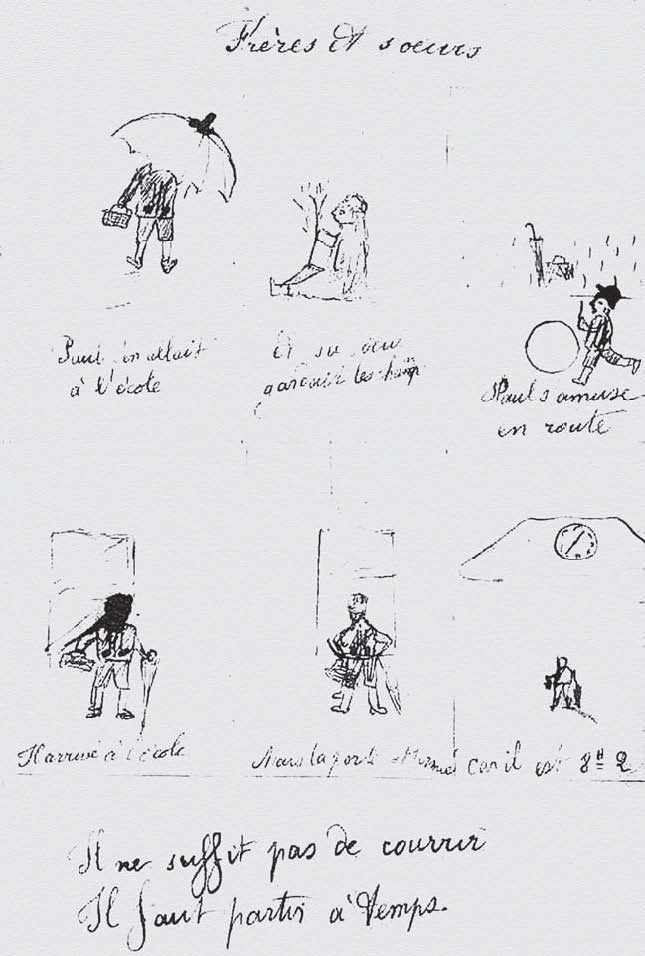 Frères et soeurs
Paul s'en allait
à l'école
Et sa soeur
gardait les champ
Paul s amuse
en route
Il arrive à l'école
Mais la porte car il est 8H 2
Il ne suffit pas de courrir
Il faut partir à temps.